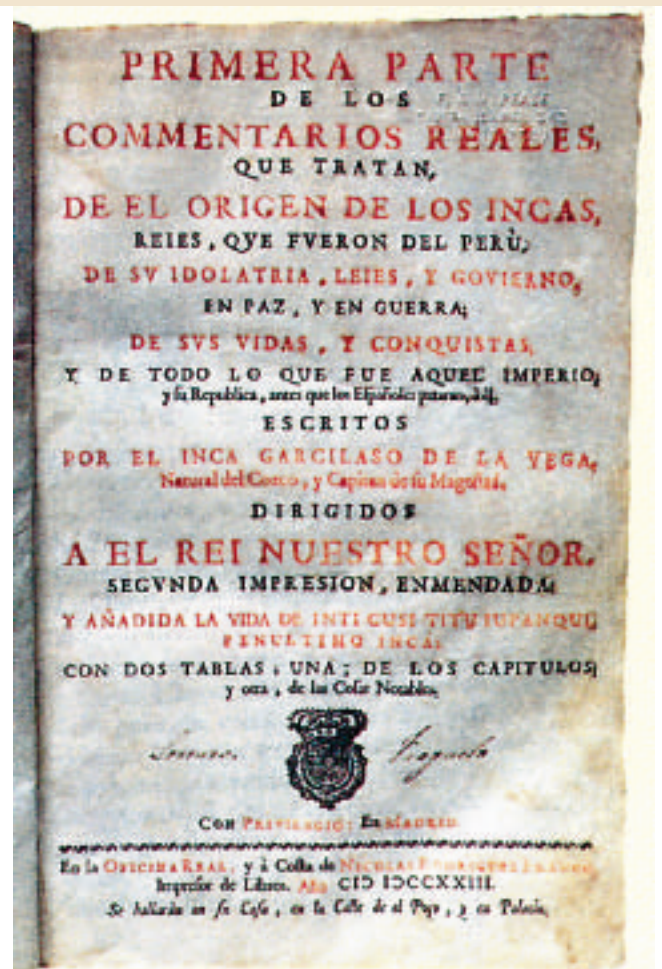 PRIMERA PARTE
DE LOS
COMMENTARIOS REALES,
QUE TRATAN,
DE EL ORIGEN DE LOS INCAS,
REIES, QVE FVERON DEL PERÙ,
DE SV IDOLATRIA, LEIES, Y GOVIERNO,
EN PAZ, Y EN GUERRA;
DE SVS VIDAS, Y CONQUISTAS,
Y DE TODO LO QUE FUE AQUEL IMPERIO,
y su Republica, antes que los Españoles pasaran, à èl,
ESCRITOS
POR EL INCA GARCILASO DE LA VEGA,
Natural del Cozco, y Capitan de su Magestad,
DIRIGIDOS
A EL REI NUESTRO SEÑOR.
SECVNDA IMPRESION, ENMENDADA;
Y AÑADIDA LA VIDA DE INTI CUSI TITU IUPANQUI,
PENULTIMO INCA;
CON DOS TABLAS; UNA; DE LOS CAPITULOS;
y otra, de las Cosas Notables.
CON PRIVILEGIO: EN MADRID
En la OFICINA REAL, y à Costa de NICOLAS RODRIGUEZ FRANCO,
Impresor de Libros. Año CIƆ IƆCCXXIII.
Se hallaràn en su Casa, en la Calle de el Poço, y en Palacio.